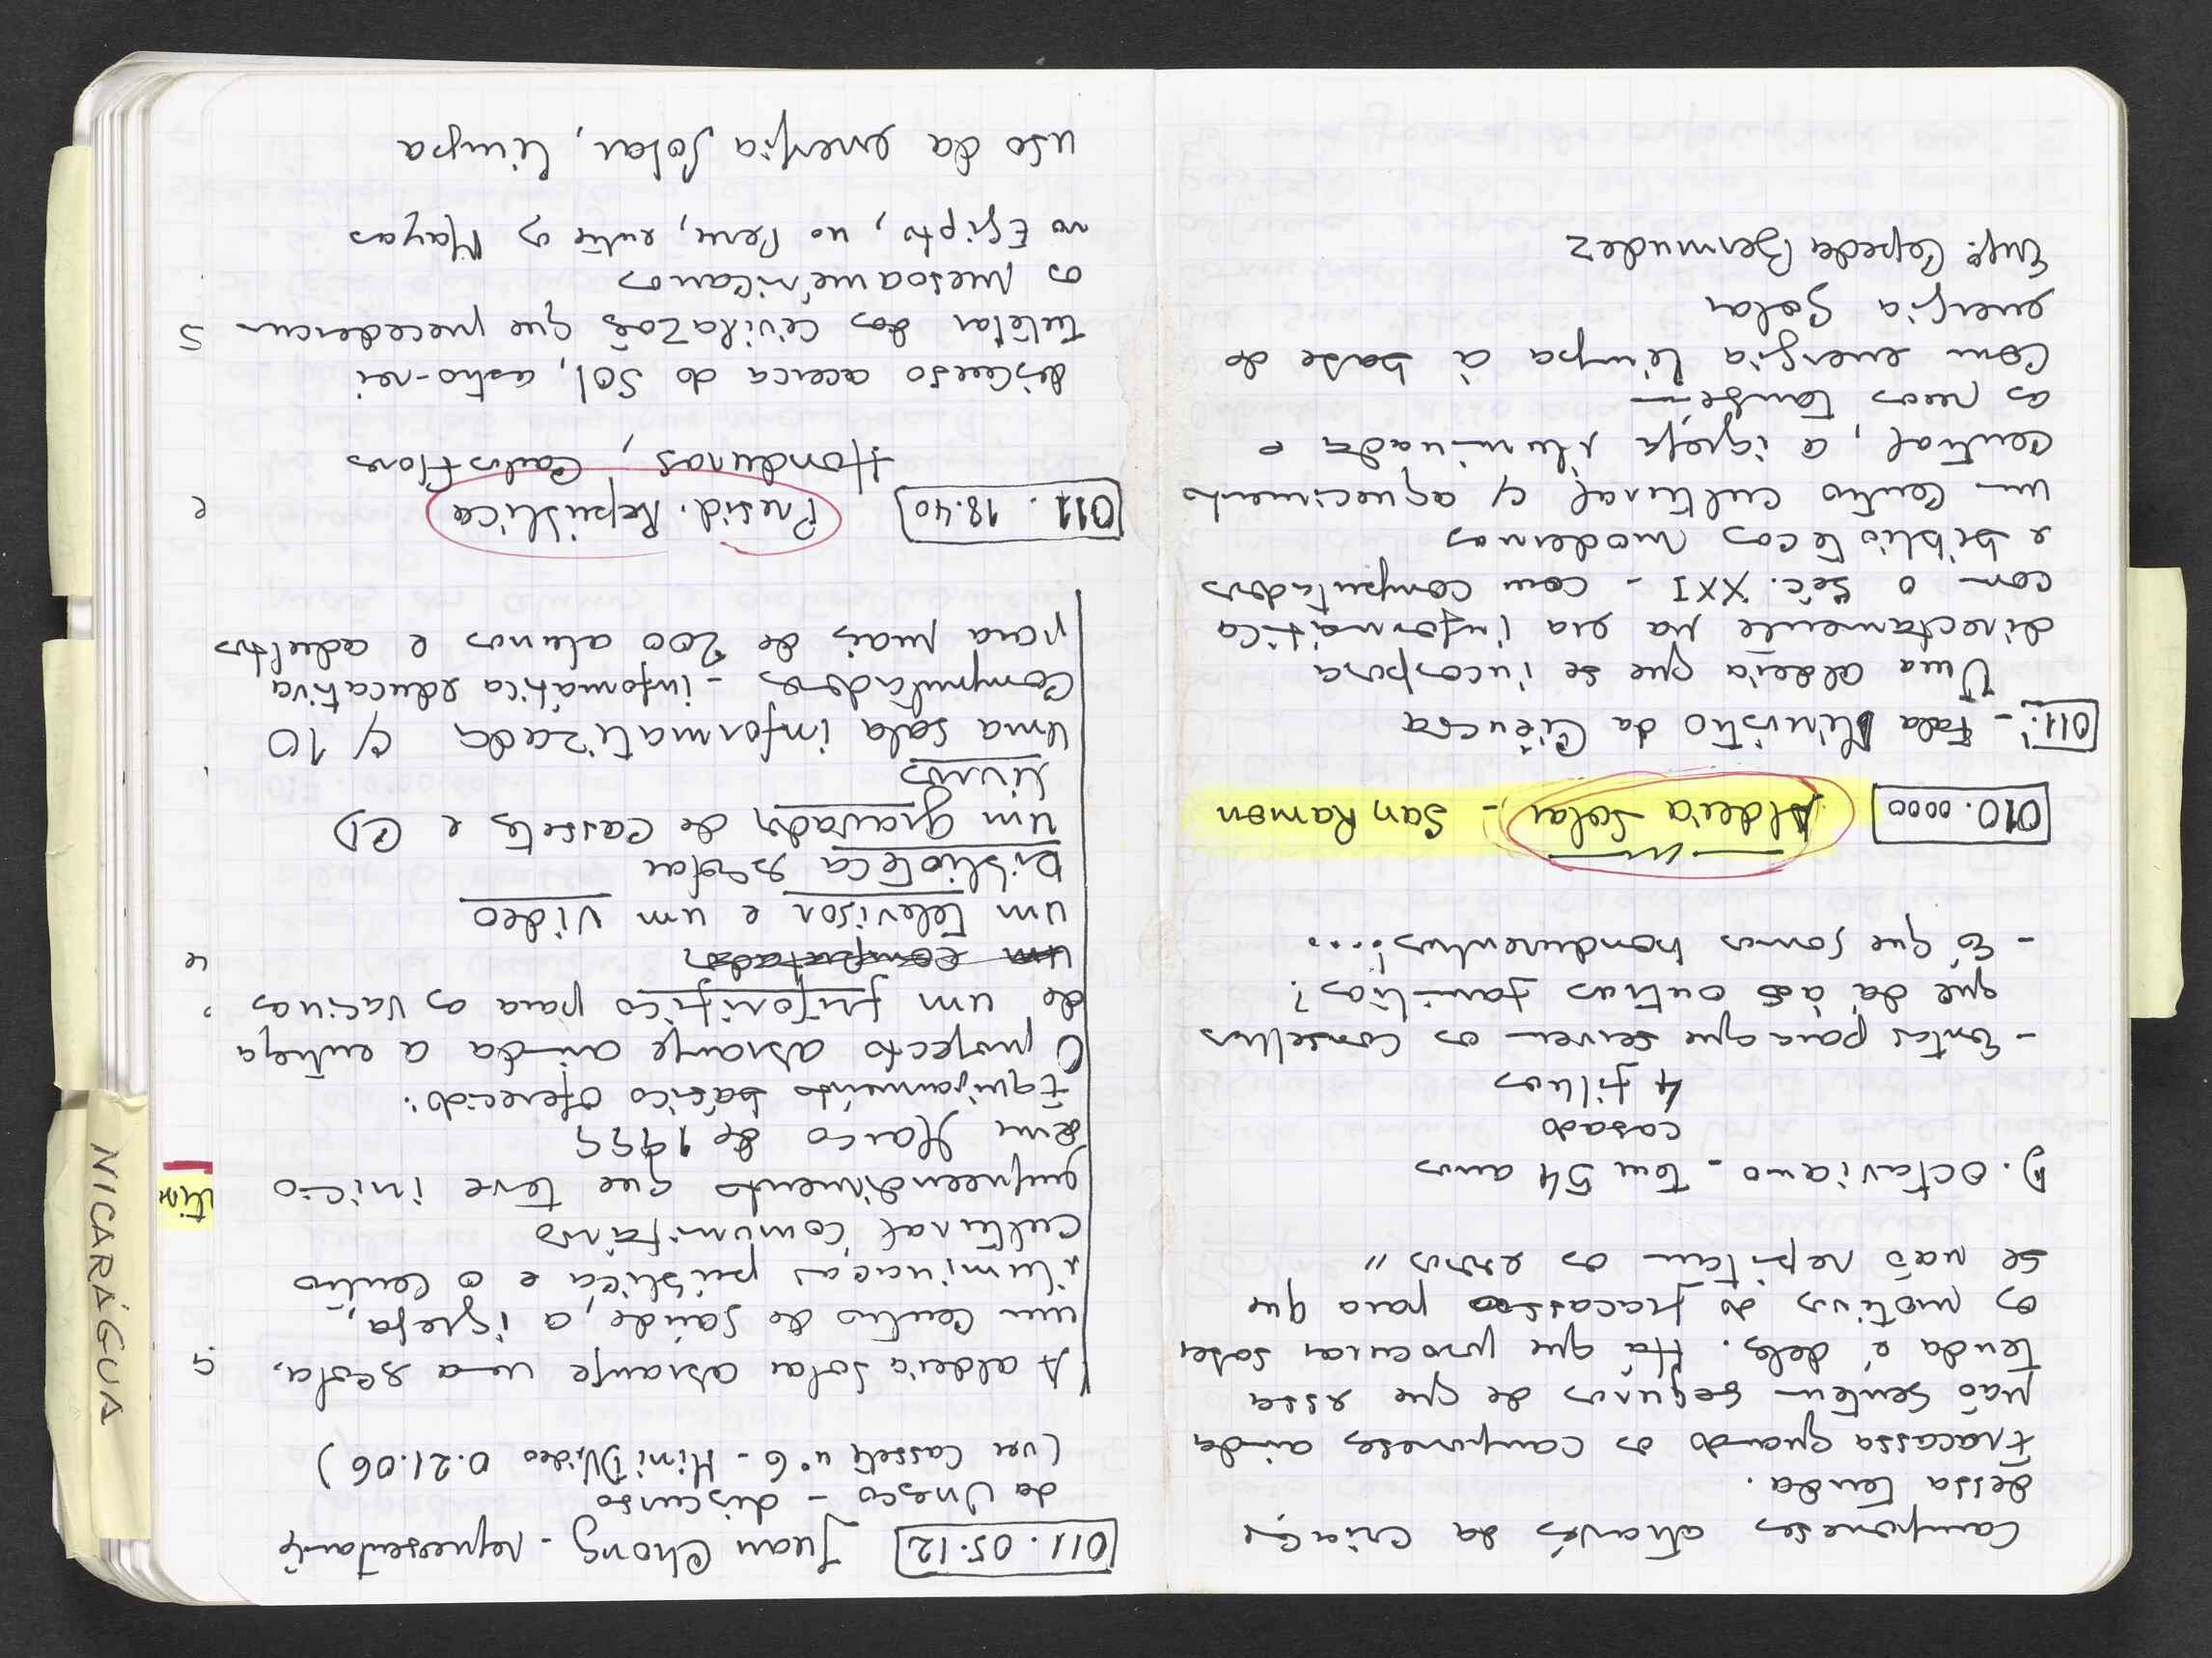 camponeses através da criação
dessa tenda.
Fracassa quando os camponeses ainda
não sentem seguros de que essa
tenda é deles. Há que procurar saber
os motivos do fracasso para que
se não repitam os erros"
D. Octaviano - Tem 54 anos
casado
4 filhos
- Então para que servem os conselhos
que dá às outras famílias?
- É que somos hondurenhos!....
010.0000 Aldeia Solar - San Ramon
011. - Fala Ministro da Ciência
Uma aldeia que se incorpora
directamente na era informática
com o Séc. XXI - com computadores
e bibliotecas modernas
um centro cultural c/ aquecimento
central, a igreja iluminada e
as ruas também
com energia limpa à base de
energia solar
Engº Cepeda Bermudez
011.05.12 Juan Chong - representante
da Unesco - discurso
(ver cassete nº 6 - Mini DVideo 0.21.06)
A aldeia solar abrange uma escola,
um centro de saúde, a igreja,
iluminação pública e o centro
cultural comunitário
empreendimento que teve início
em Março de 1999
Equipamento básico oferecido:
O projecto abrange ainda a entrega
de um frigorífico para as vacinas
um computador
um televisor e um video
biblioteca escolar
um gravador de cassete e CD
livros
uma sala informatizada c/ 10
computadores - informática educativa
para mais de 200 alunos e adultos
011.18.40 Presid. República
Honduras, Carlos Flores
discurso acerca do SOL, astro-rei
tutelar das civilizações que precederam
os mesoaméricanos
no Egipto, no Peru, entre os Mayas
uso da energia solar, limpa
NICARÁGUA